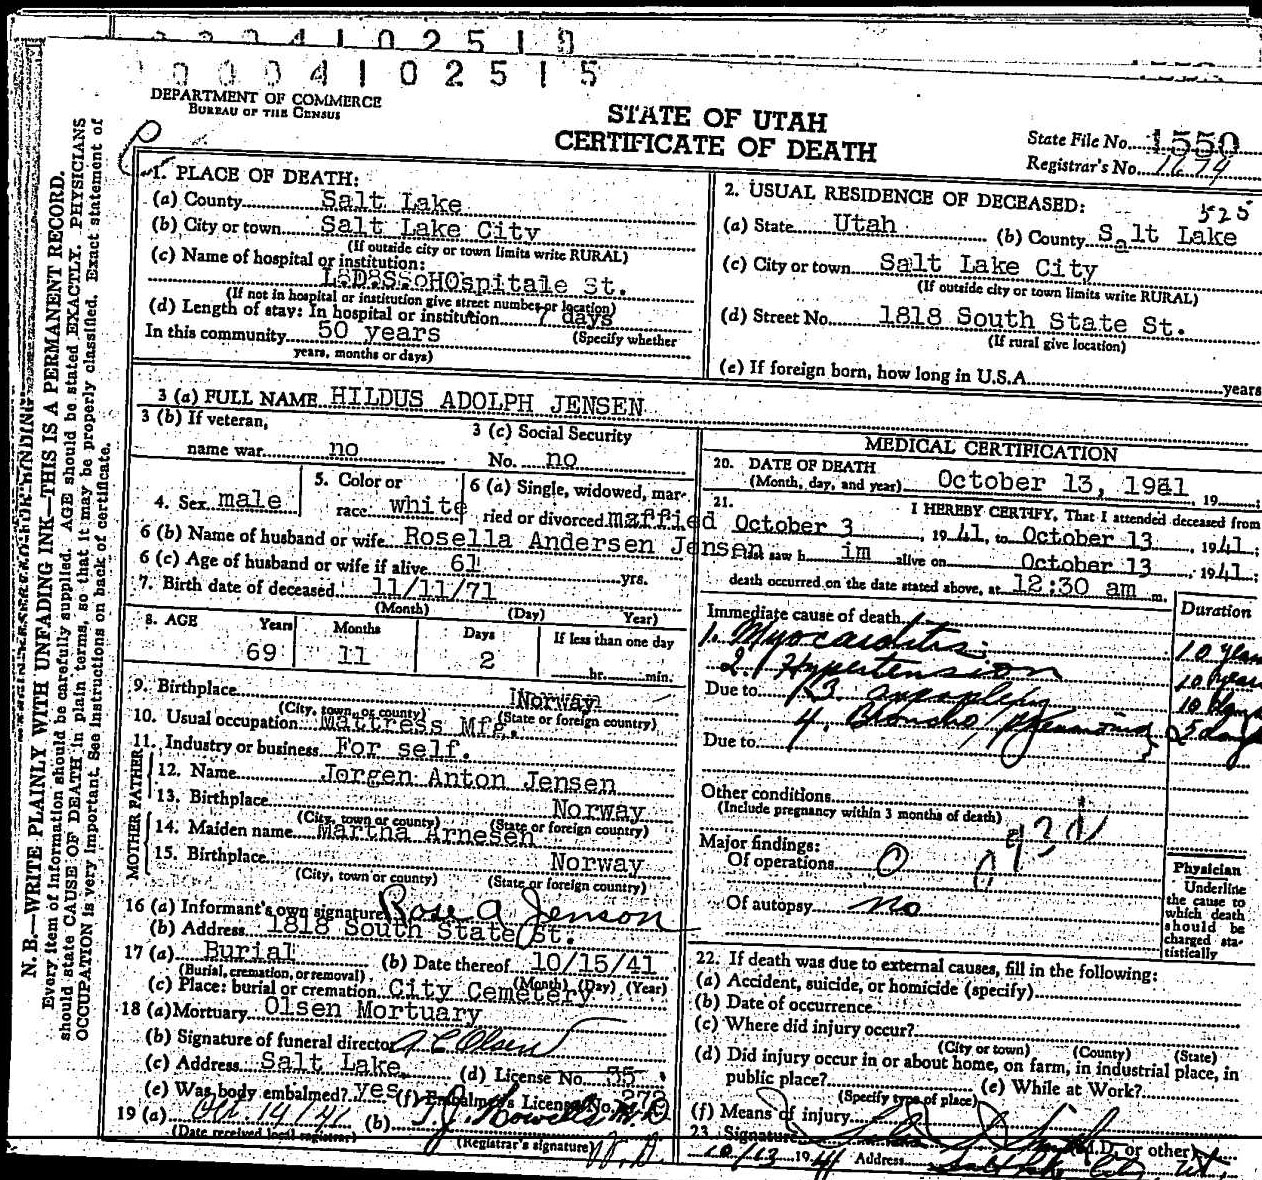 0004102515
DEPARTMENT OF COMMERCE
BUREAU OF THE CENSUS
STATE OF UTAH
CERTIFICATE OF DEATH
State File No. 1550
Registrar's No. 1674
N. B.—WRITE PLAINLY WITH UNFADING INK—THIS IS A PERMANENT RECORD.
Every item of information should be carefully supplied. AGE should be stated EXACTLY. PHYSICIANS
should state CAUSE OF DEATH in plain terms, so that it may be properly classified. Exact statement of
OCCUPATION is very important. See instructions on back of certificate.
1. PLACE OF DEATH:
(a) County Salt Lake
(b) City or town Salt Lake City
(If outside city or town limits write RURAL)
(c) Name of hospital or institution:
St.
(If not in hospital or institution give street number or location)
(d) Length of stay: In hospital or institution 7 days
In this community 50 years (Specify whether
years, months or days)
2. USUAL RESIDENCE OF DECEASED: 525
(a) State Utah (b) County Salt Lake
(c) City or town Salt Lake City
(If outside city or town limits write RURAL)
(d) Street No. 1818 South State St.
(If rural give location)
(e) If foreign born, how long in U.S.A. years
3 (a) FULL NAME HILDUS ADOLPH JENSEN
3 (b) If veteran,
name war no
3 (c) Social Security
No. no
4. Sex male
5. Color or
race white
6 (a) Single, widowed, mar-
ried or divorced married
6 (b) Name of husband or wife Rosella Andersen Jensen
6 (c) Age of husband or wife if alive 61 yrs.
7. Birth date of deceased 11/11/71
(Month) (Day) Year)
8. AGE Years Months Days If less than one day
69 11 2 hr. min.
9. Birthplace Norway
(City, town, or county) (State or foreign country)
10. Usual occupation Mattress Mfg.
11. Industry or business For self.
FATHER
12. Name Jørgen Anton Jensen
13. Birthplace Norway
(City, town or county) (State or foreign country)
MOTHER
14. Maiden name Martha Arnesen
15. Birthplace Norway
(City, town or county) (State or foreign country)
16 (a) Informant's own signature Rose A Jenson
(b) Address 1818 South State St.
17 (a) Burial (b) Date thereof 10/15/41
(Burial, cremation, or removal) (Month) (Day) (Year)
(c) Place: burial or cremation City Cemetery
18 (a) Mortuary Olsen Mortuary
(b) Signature of funeral director A C Olsen
(c) Address Salt Lake (d) License No. 55
(e) Was body embalmed? yes (f) Embalmer's License No. 278
19 (a) Oct. 14/41 (b)
(Date received local registrar) (Registrar's signature)
MEDICAL CERTIFICATION
20. DATE OF DEATH
(Month, day, and year) October 13, 1941, 19 ;
21. I HEREBY CERTIFY, That I attended deceased from
October 3, 1941, to October 13, 1941;
saw h im alive on October 13, 1941;
death occurred on the date stated above, at 12:30 am m.
Immediate cause of death Duration
1. Myocarditis 10 years
2. Hypertension 10 years
Due to 3. apoplexy 10 days
4. Broncho pneumonia 5 days
Due to
Other conditions
(Include pregnancy within 3 months of death)
Major findings:
Of operations 0
Of autopsy no
Physician
Underline
the cause to
which death
should be
charged sta-
tistically
22. If death was due to external causes, fill in the following:
(a) Accident, suicide, or homicide (specify)
(b) Date of occurrence
(c) Where did injury occur?
(City or town) (County) (State)
(d) Did injury occur in or about home, on farm, in industrial place, in
public place? (e) While at Work?
(Specify type of place)
(f) Means of injury
23. Signature (M.D. or other)
10/13 1941 Address Salt Lake City, Ut.